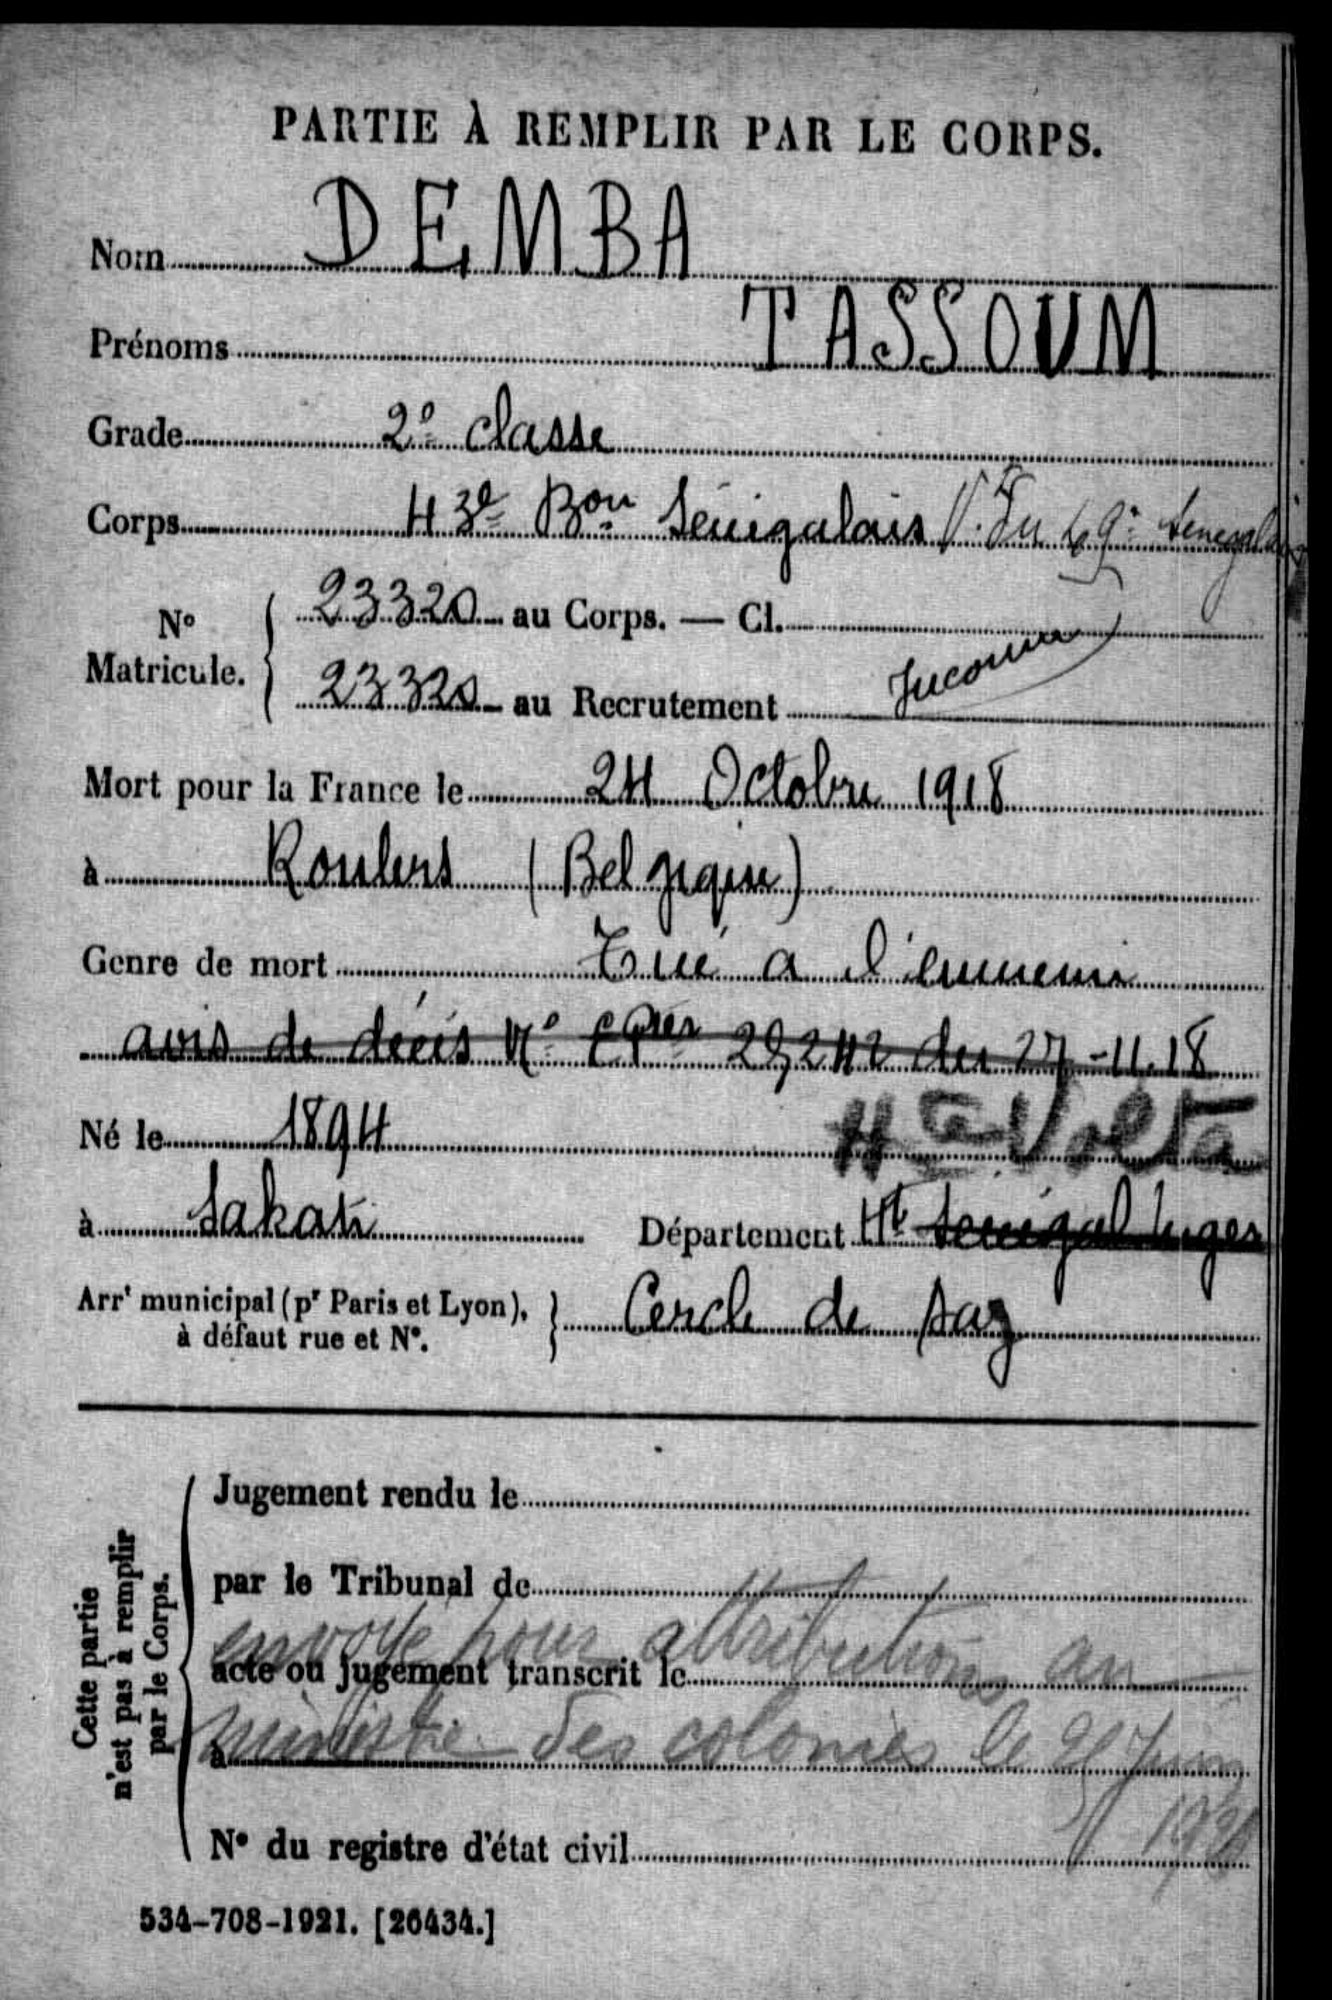 PARTIE À REMPLIR PAR LE CORPS.
Nom DEMBA
Prénoms TASSOUM
Grade 2e classe
Corps 43e Bon Sénégalais V. Du 69e Senegalais
No Matricule. 23320 au Corps. — Cl.
23320 au Recrutement Inconnu
Mort pour la France le 24 Octobre 1918
à Roulers (Belgique)
Genre de mort Tué a l'ennemi
avis de décès No 29242 du 27-11.18
Né le 1894 Hte Volta
à Sakati Département Ht Senégal Niger
Arrt municipal (pr Paris et Lyon), à défaut rue et No. Cercle de Say
Cette partie n'est pas à remplir par le Corps.
Jugement rendu le
par le Tribunal de
envoyé pour attributions au
acte ou jugement transcrit le
ministre des colonies le Juin
à
N° du registre d'état civil
534-708-1921. [26434.]